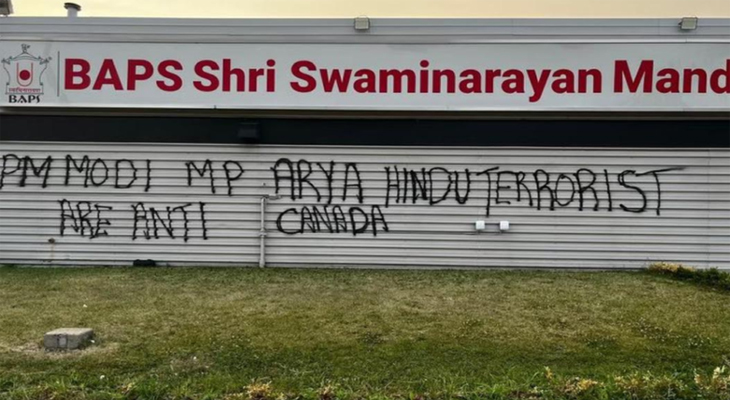 BAPS Shri Swaminarayan Mand
BAPS
PM MODI MP ARYA HINDU TERRORIST
ARE ANTI CANADA